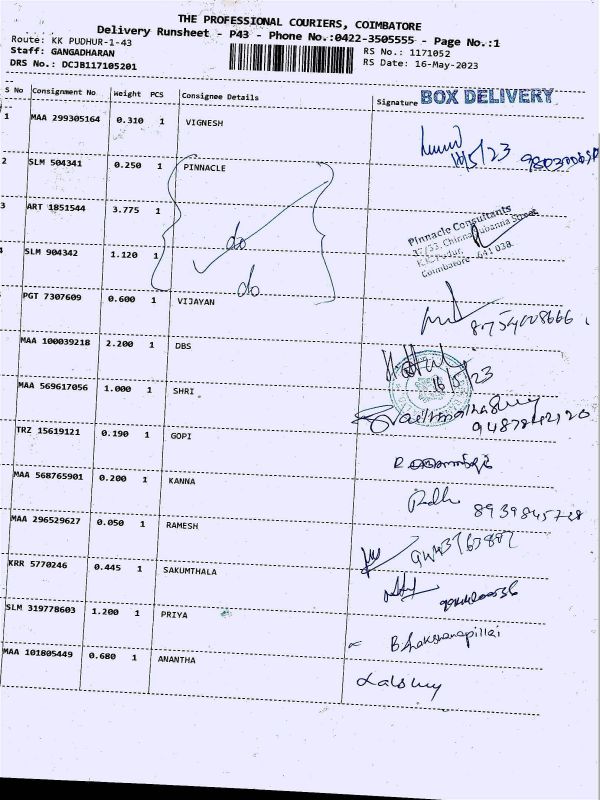 THE PROFESSIONAL COURIERS, COIMBATORE
Delivery Runsheet - P43 - Phone No.:0422-3505555 - Page No.:1
Route: KK PUDHUR-1-43 RS No.: 1171052
Staff: GANGADHARAN RS Date: 16-May-2023
DRS No.: DCJB117105201
S No Consignment No Weight PCS Consignee Details Signature BOX DELIVERY
1 MAA 299305164 0.310 1 VIGNESH
16/5/23
2 SLM 504341 0.250 1 PINNACLE
3 ART 1851544 3.775 1 do
Pinnacle Consultants
Coimbatore - 641 038.
4 SLM 904342 1.120 1 do
PGT 7307609 0.600 1 VIJAYAN
MAA 100039218 2.200 1 DBS
16/5/23
MAA 569617056 1.000 1 SHRI
TRZ 15619121 0.190 1 GOPI
MAA 568765901 0.200 1 KANNA
MAA 296529627 0.050 1 RAMESH
KRR 5770246 0.445 1 SAKUMTHALA
SLM 319778603 1.200 1 PRIYA
MAA 101805449 0.680 1 ANANTHA